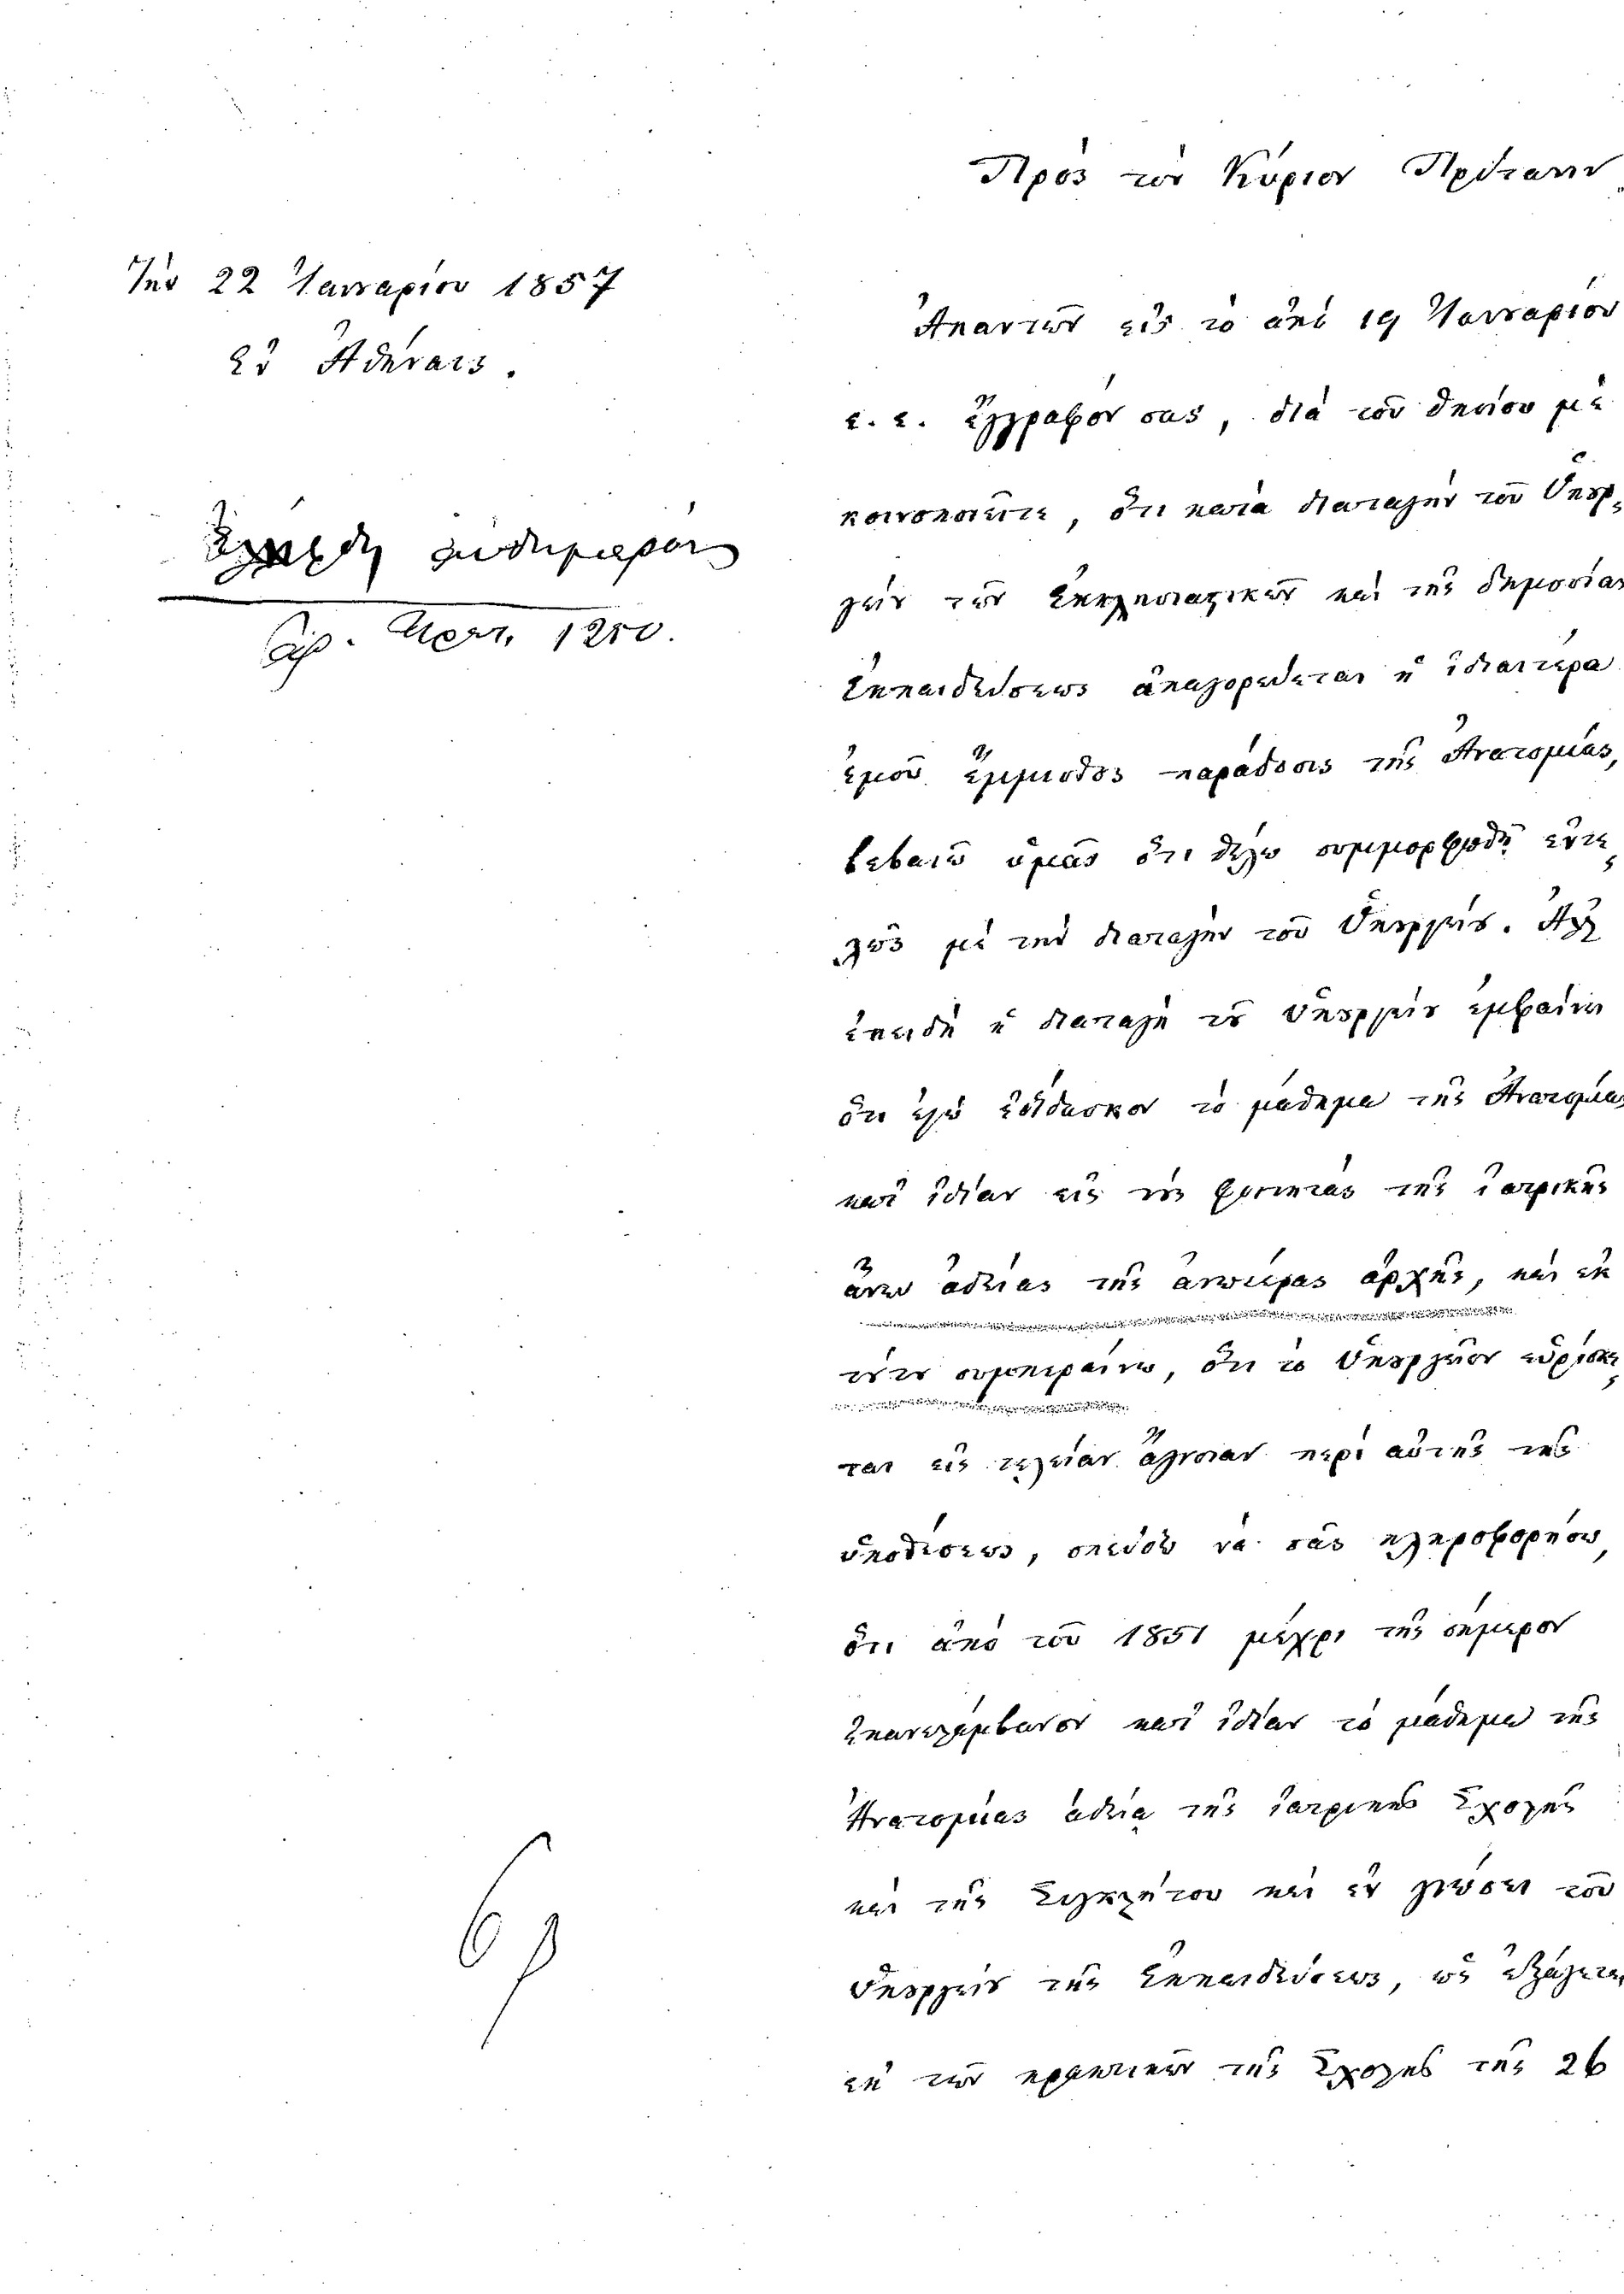 Πρὸς τὸν Κύριον Πρύτανιν
Τὴν 22 Ἰανουαρίου 1857
ἐν Ἀθήναις.
Ἐλήφθη αὐθημερόν
Ἀρ. Πρωτ. 1250.
Ἀπαντῶν εἰς τὸ ἀπὸ 19 Ἰανουαρίου
ἐ. ἔ. ἔγγραφόν σας, διὰ τοῦ ὁποίου μὲ
κοινοποιεῖτε, ὅτι κατὰ διαταγὴν τοῦ Ὑπουρ-
γείου τῶν Ἐκκλησιαστικῶν καὶ τῆς δημοσίας
Ἐκπαιδεύσεως ἀπαγορεύεται ἡ ἰδιαιτέρα
ἐμοῦ ἔμμισθος παράδοσις τῆς Ἀνατομίας,
βεβαιῶ ὑμᾶς ὅτι θέλω συμμορφωθῆ ἐντε-
λῶς μὲ τὴν διαταγὴν τοῦ Ὑπουργείου. Ἀλλ'
ἐπειδὴ ἡ διαταγὴ τοῦ Ὑπουργείου ἐμφαίνει
ὅτι ἐγὼ ἐδίδασκον τὸ μάθημα τῆς Ἀνατομίας
κατ' ἰδίαν εἰς τοὺς φοιτητὰς τῆς ἰατρικῆς
ἄνευ ἀδείας τῆς ἀνωτέρας ἀρχῆς, καὶ ἐκ
τούτου συμπεραίνω, ὅτι τὸ Ὑπουργεῖον εὑρίσκε-
ται εἰς τελείαν ἄγνοιαν περὶ αὐτῆς τῆς
ὑποθέσεως, σπεύδω νὰ σᾶς πληροφορήσω,
ὅτι ἀπὸ τοῦ 1851 μέχρι τῆς σήμερον
ἐπανελάμβανον κατ' ἰδίαν τὸ μάθημα τῆς
Ἀνατομίας ἀδείᾳ τῆς ἰατρικῆς Σχολῆς
καὶ τῆς Συγκλήτου καὶ ἐν γνώσει τοῦ
Ὑπουργείου τῆς Ἐκπαιδεύσεως, ὡς ἐξάγεται
ἐκ τῶν πρακτικῶν τῆς Σχολῆς τῆς 26